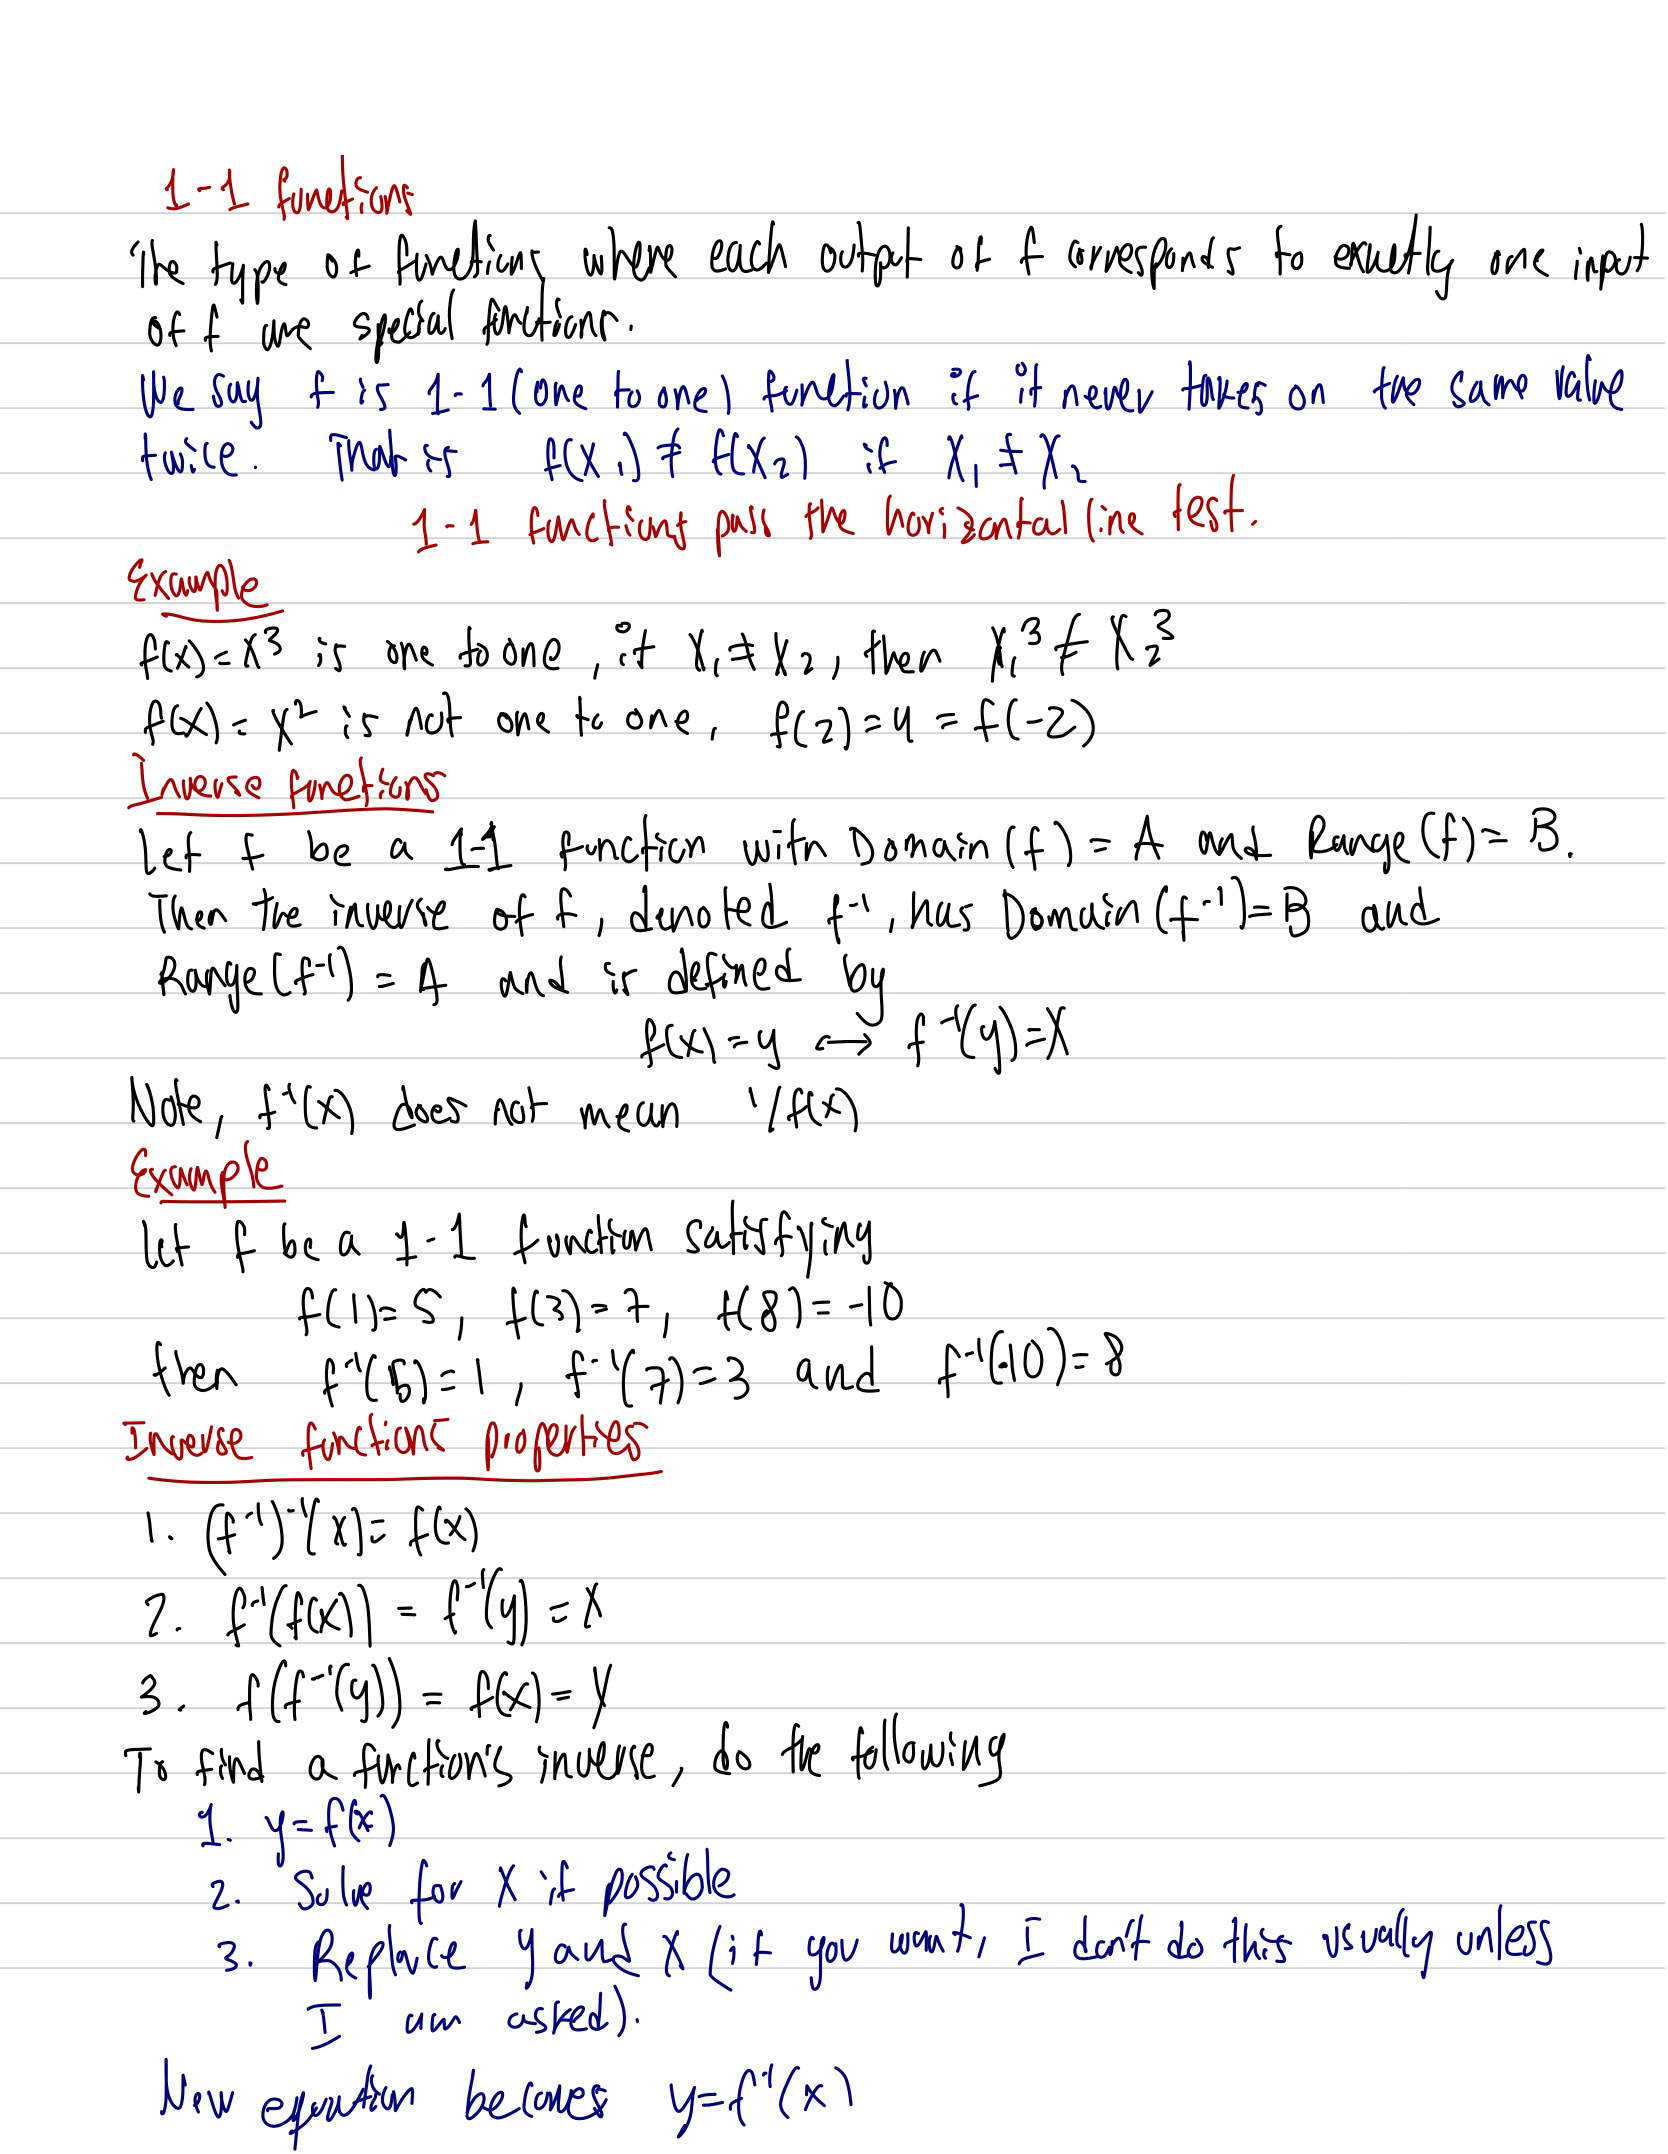 1-1 functions
The type of functions where each output of f corresponds to exactly one input
of f are special functions.
We say f is 1-1 (one to one) function if it never takes on the same value
twice. That is f(x₁) ≠ f(x₂) if x₁ ≠ x₂
1-1 functions pass the horizontal line test.
Example
f(x) = x³ is one to one, if x₁ ≠ x₂, then x₁³ ≠ x₂³
f(x) = x² is not one to one, f(2) = 4 = f(-2)
Inverse functions
Let f be a 1-1 function with Domain(f) = A and Range(f) = B.
Then the inverse of f, denoted f⁻¹, has Domain(f⁻¹) = B and
Range(f⁻¹) = A and is defined by
f(x) = y ↔ f⁻¹(y) = x
Note, f⁻¹(x) does not mean 1/f(x)
Example
Let f be a 1-1 function satisfying
f(1) = 5, f(3) = 7, f(8) = -10
then f⁻¹(5) = 1, f⁻¹(7) = 3 and f⁻¹(-10) = 8
Inverse functions properties
1. (f⁻¹)⁻¹(x) = f(x)
2. f⁻¹(f(x)) = f⁻¹(y) = x
3. f(f⁻¹(y)) = f(x) = y
To find a function's inverse, do the following
1. y = f(x)
2. Solve for x if possible
3. Replace y and x (if you want, I don't do this usually unless
I am asked).
New equation becomes y = f⁻¹(x)